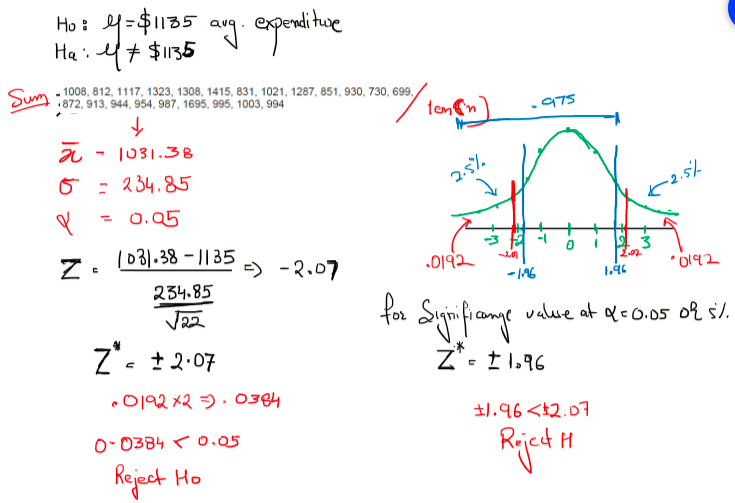 H₀: μ = $1135 avg. expenditure
Ha: μ ≠ $1135
Sum
1008, 812, 1117, 1323, 1308, 1415, 831, 1021, 1287, 851, 930, 730, 699,
872, 913, 944, 954, 987, 1695, 995, 1003, 994
/ len(n)
x̄ = 1031.38
σ = 234.85
α = 0.05
Z = (1031.38 - 1135) / (234.85 / √22) => -2.07
Z* = ± 2.07
.0192 x2 => .0384
0.0384 < 0.05
Reject Ho
.975
2.5%
2.5%
-3 -2 -1 0 1 2 3
.0192
-1.96
1.96
.0192
for Significance value at α = 0.05 or 5%.
Z* = ± 1.96
±1.96 < ±2.07
Reject H